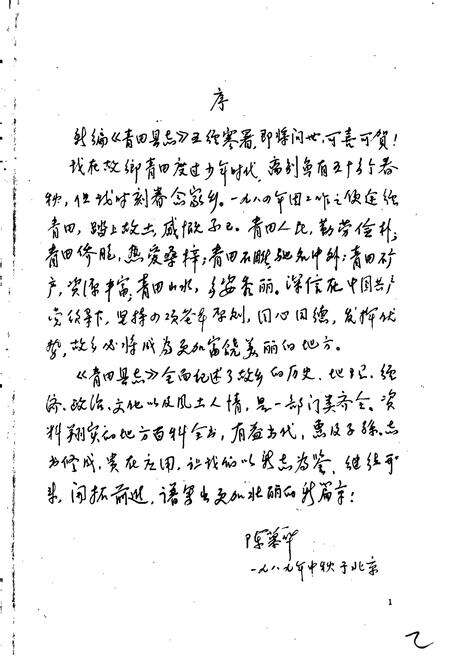 序
新编《青田县志》五经寒暑，即将问世，可喜可贺！
我在故鄉青田度过少年时代，离别虽有五十多个春
秋，但我时刻眷念家乡。一九八四年因工作之便途经
青田，踏上故土，感慨不已。青田人民，勤劳俭朴；
青田侨胞，热爱桑梓；青田石雕，驰名中外；青田矿
产，资源丰富；青田山水，多姿秀丽。深信在中国共产
党领导下，坚持四项基本原则，同心同德，发挥优
势，故乡必将成为更加富饶美丽的地方。
《青田县志》全面记述了故乡的历史、地理、经
济、政治、文化以及风土人情，是一部门类齐全、资
料翔实的地方百科全书，有益当代，惠及子孙。志
书修成，贵在应用，让我们以新志为鉴，继往开
来，开拓前进，谱写出更加壮丽的新篇章！
陈慕华
一九八九年中秋于北京
1